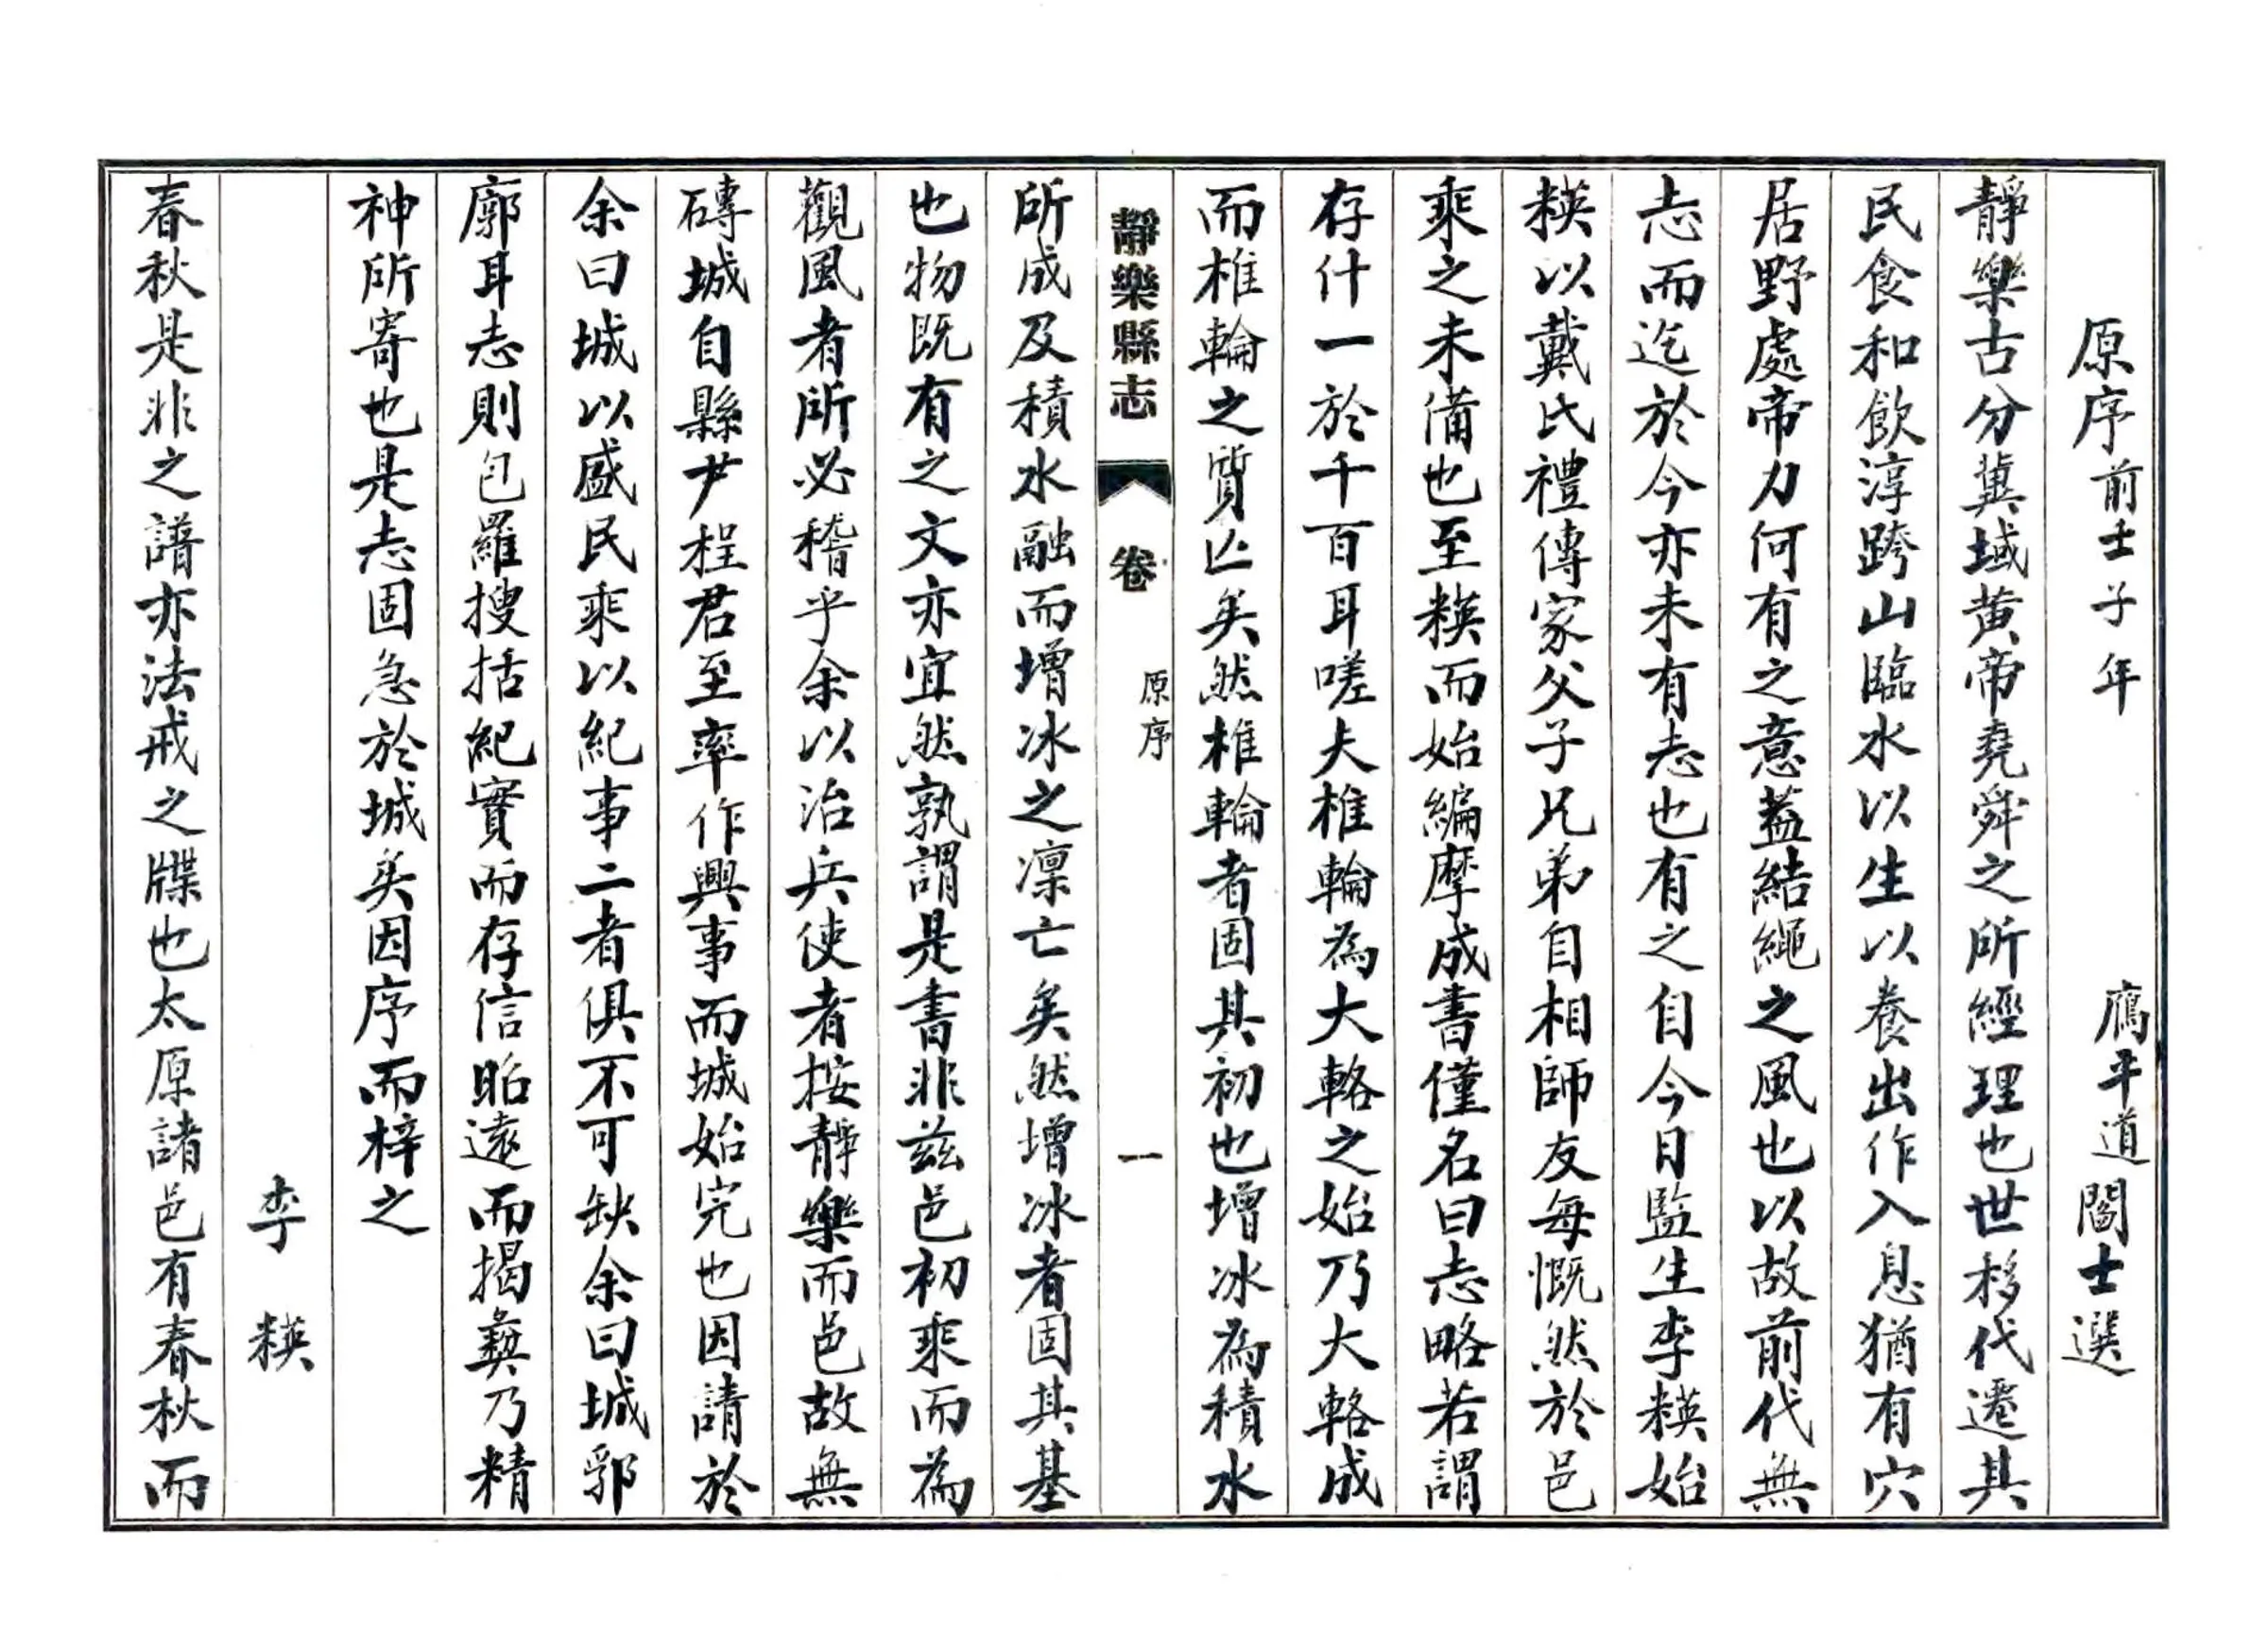 原序前壬子年 鴈平道閻士選
靜樂古分冀域黄帝堯舜之所經理也世移代遷其
民食和飲淳跨山臨水以生以養出作入息猶有穴
居野處帝力何有之意葢結繩之風也以故前代無
志而迄於今亦未有志也有之自今日監生李糡始
糡以戴氏禮傳家父子兄弟自相師友每慨然於邑
乘之未備也至糡而始編摩成書僅名曰志略若謂
存什一於千百耳嗟夫椎輪為大輅之始乃大輅成
而椎輪之質亾矣然椎輪者固其初也增冰為積水
靜樂縣志 卷 原序 一
所成及積水融而增冰之凛亡矣然增冰者固其基
也物既有之文亦宜然孰謂是書非兹邑初乘而為
觀風者所必稽乎余以治兵使者按靜樂而邑故無
磚城自縣尹程君至率作興事而城始完也因請於
余曰城以盛民乘以紀事二者俱不可缺余曰城郛
廓耳志則包羅搜括紀實而存信眙遠而揭彝乃精
神所寄也是志固急於城矣因序而梓之
李糡
春秋是非之譜亦法戒之牒也太原諸邑有春秋而